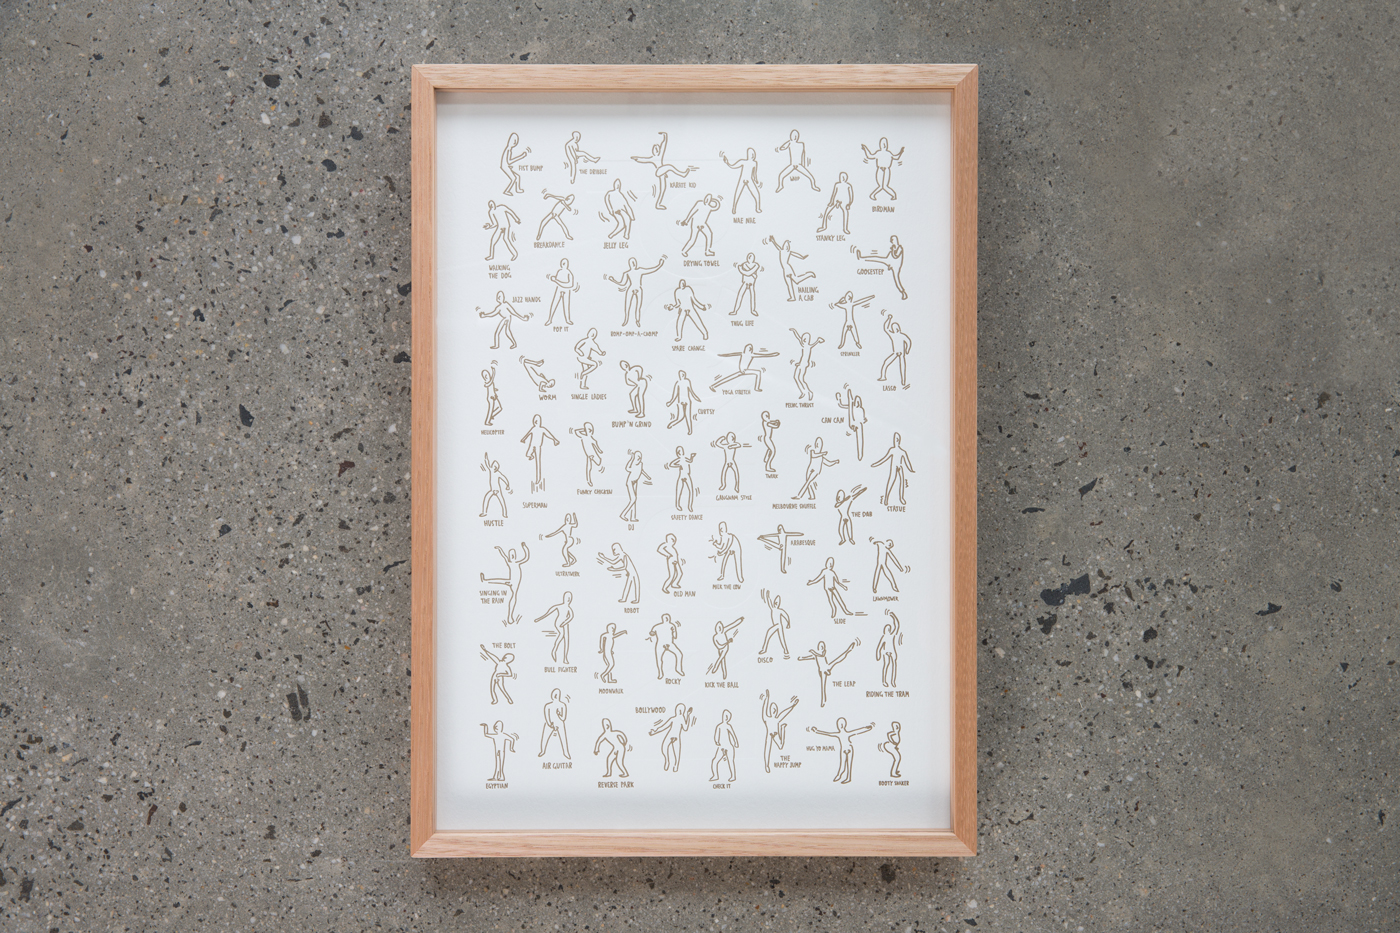 FIST BUMP
THE DRIBBLE
KARATE KID
NAE NAE
WHIP
STANKY LEG
BIRDMAN
WALKING
THE DOG
BREAKDANCE
JELLY LEG
DRYING TOWEL
HAILING
A CAB
GOOSESTEP
JAZZ HANDS
POP IT
SPARE CHANGE
THUG LIFE
SPRINKLER
LASSO
HELICOPTER
WORM
SINGLE LADIES
BUMP'N GRIND
TOOTSY
YOGA STRETCH
PELVIC THRUST
CAN CAN
HUSTLE
SUPERMAN
FUNKY CHICKEN
DJ
SAFETY DANCE
GANGNAM STYLE
TWERK
MELBOURNE SHUFFLE
THE DAB
STATUE
SINGING IN
THE RAIN
ROBOT
OLD MAN
MILK THE COW
ARABESQUE
SLIDE
LAWNMOWER
THE BOLT
BULL FIGHTER
MOONWALK
ROCKY
KICK THE BALL
DISCO
THE LEAP
RIDING THE TRAM
EGYPTIAN
AIR GUITAR
REVERSE PARK
BOLLYWOOD
CHECK IT
THE
HAPPY JUMP
HUG YO MAMA
BOOTY SHAKER